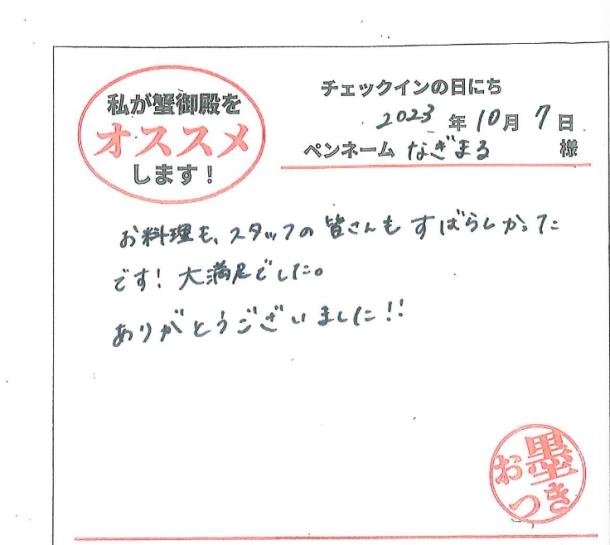 私が蟹御殿を
オススメ
します！
チェックインの日にち
2023年10月7日
ペンネーム なぎまる 様
お料理も、スタッフの皆さんもすばらしかった
です！大満足でした。
ありがとうございました!!
お墨
つき